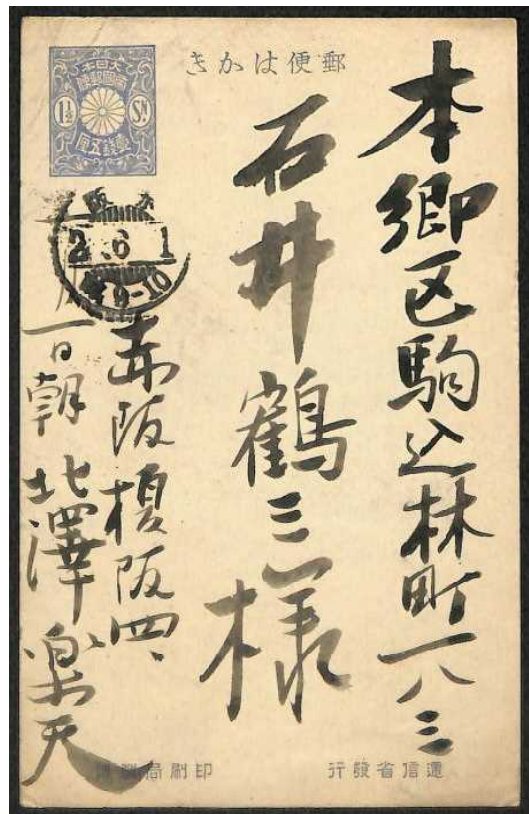 郵便はかき
大日本
帝國郵便
1½ Sn.
壹錢五厘
2.6.1
9-10
本郷区駒込林町一八三
石井鶴三様
赤阪榎阪四、
一日朝 北澤楽天
遞信省發行
印刷局製造